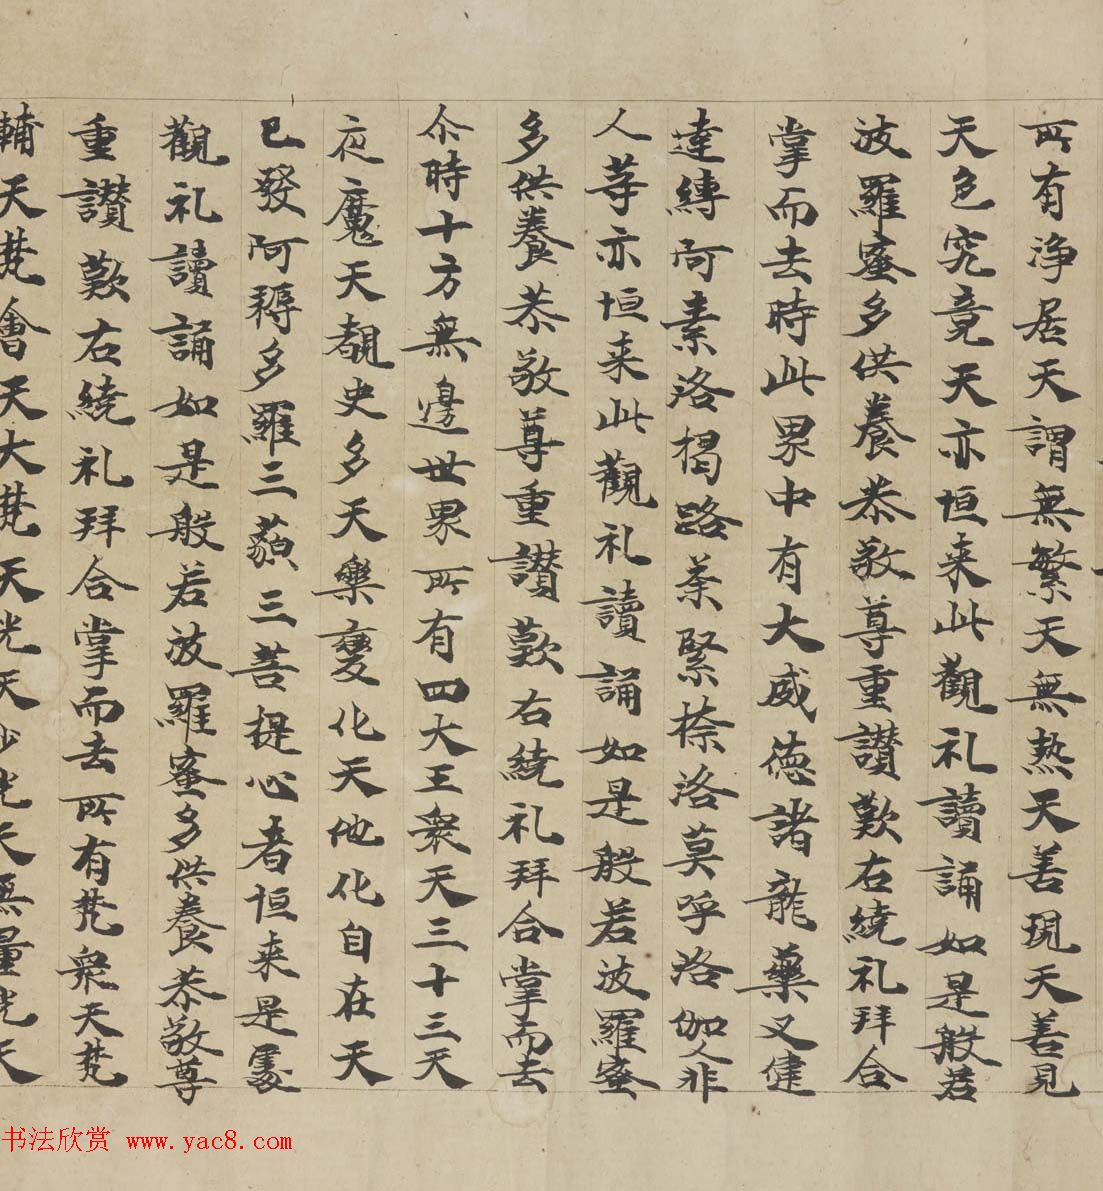 所有淨居天謂無繁天無熱天善現天善見
天色究竟天亦恒来此觀礼讀誦如是般若
波羅蜜多供養恭敬尊重讚歎右繞礼拜合
掌而去時此界中有大威德諸龍藥叉健
達縛阿素洛揭路荼緊捺洛莫呼洛伽人非
人等亦恒来此觀礼讀誦如是般若波羅蜜
多供養恭敬尊重讚歎右繞礼拜合掌而去
尒時十方無邊世界所有四大王衆天三十三天
夜魔天覩史多天樂變化天他化自在天
已發阿耨多羅三藐三菩提心者恒来是處
觀礼讀誦如是般若波羅蜜多供養恭敬尊
重讚歎右繞礼拜合掌而去所有梵衆天梵
輔天梵會天大梵天光天少光天無量光天
书法欣赏 www.yac8.com